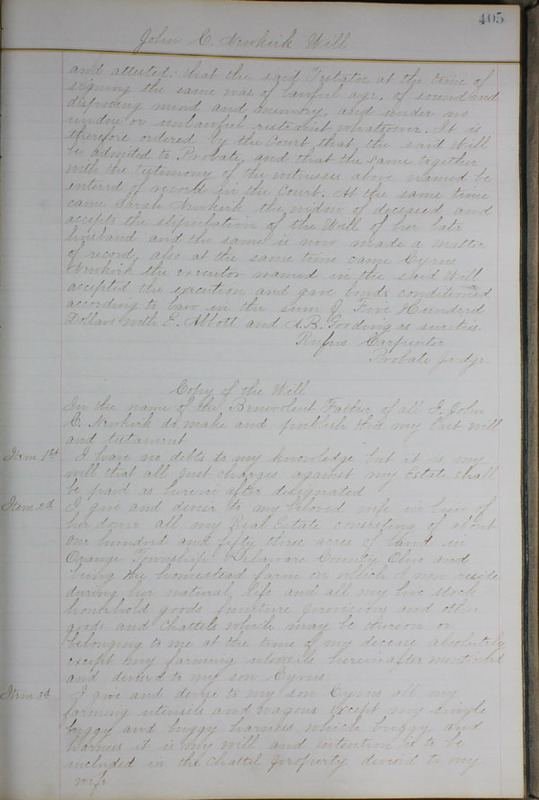 405
John C. Newkirk Will
and attested: that the said Testator at the time of
signing the same was of lawful age, of sound and
disposing mind and memory, and under no
undue or unlawful restraint whatsoever. It is
therefore ordered by the Court that the said Will
be admitted to Probate, and that the same together
with the testimony of the witnesses above named be
entered of record in the Court. At the same time
came Sarah Newkirk the widow of deceased and
accepts the stipulation of the Will of her late
husband and the same is now made a matter
of record, also at the same time came Cyrus
Newkirk the executor named in the said Will
accepted the execution and gave bonds conditioned
according to law in the sum of Five Hundred
Dollars with E. Abbott and A.B. Gooding as sureties
Rufus Carpenter
Probate Judge
Copy of the Will
In the name of the Benevolent Father of all I, John
C. Newkirk do make and publish this my last will
and testament
Item 1st I have no debts to my knowledge but it is my
will that all just charges against my Estate shall
be paid as herein after designated
Item 2d I give and devise to my beloved wife in lieu of
her dower all my Real Estate consisting of about
one hundred and fifty three acres of land in
Orange Township Delaware County Ohio and
being the homestead farm on which I now reside
during her natural life and all my live stock
household goods furniture provisions and other
goods and chattels which may be thereon or
belonging to me at the time of my decease absolutely
except my farming utensils hereinafter mentioned
and devised to my son Cyrus
Item 3d I give and devise to my son Cyrus all my
farming utensils and wagons except my single
buggy and buggy harness which buggy and
harness it is my will and intention is to be
included in the chattel property devised to my
wife